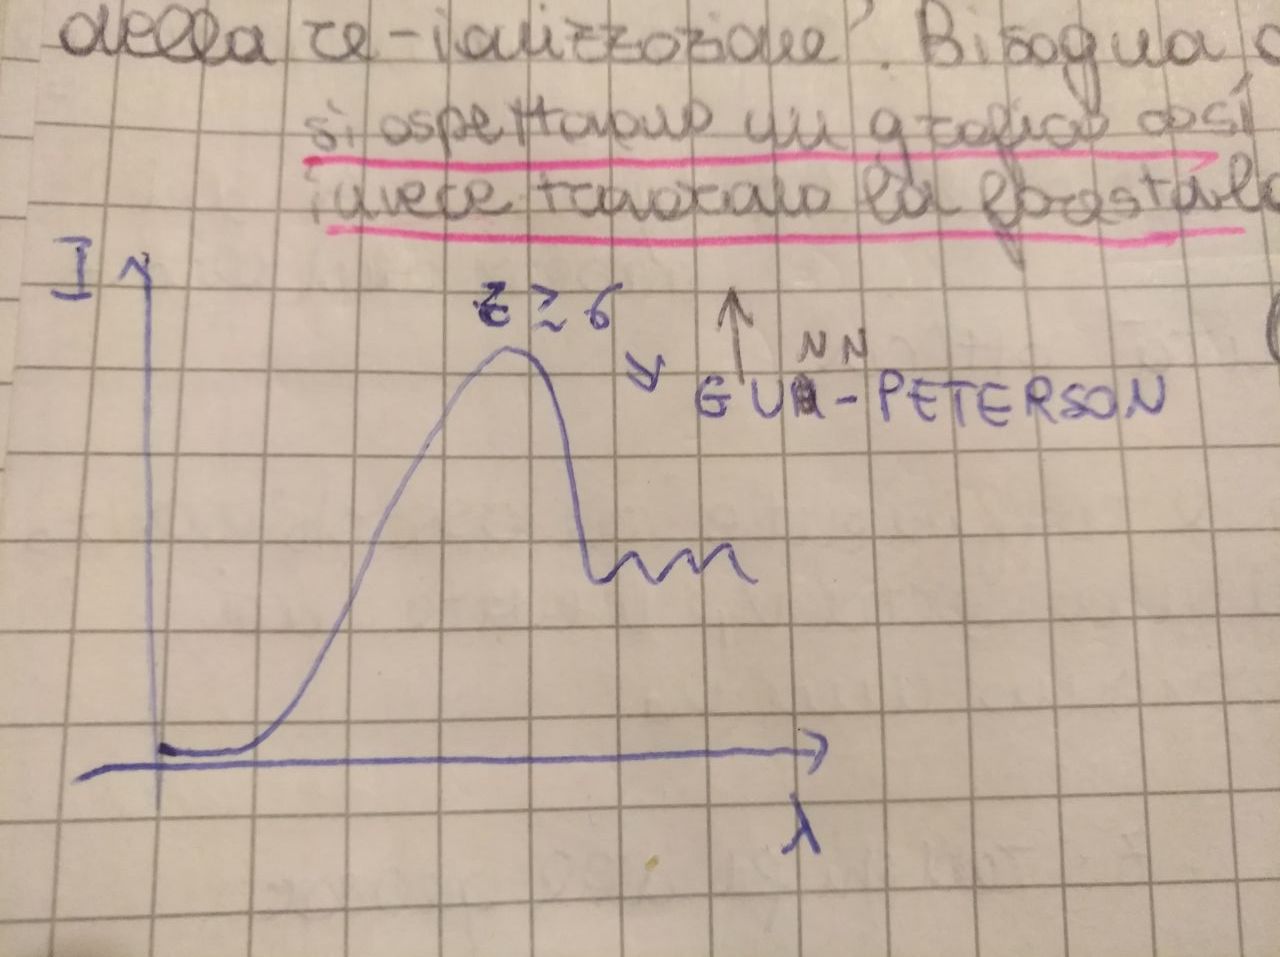 della re-ionizzazione? Bisogna
si aspettavano un grafico così
invece trovarono la foresta
I
z ≥ 6
NN
GUN-PETERSON
λ